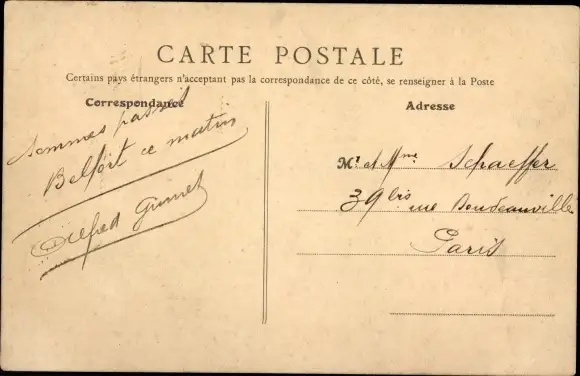 CARTE POSTALE
Certains pays étrangers n'acceptant pas la correspondance de ce côté, se renseigner à la Poste
Correspondance
Sommes passé
Belfort ce matin
Alfred
Adresse
Mr et Mme Schaeffer
39 bis rue Doudeauville
Paris